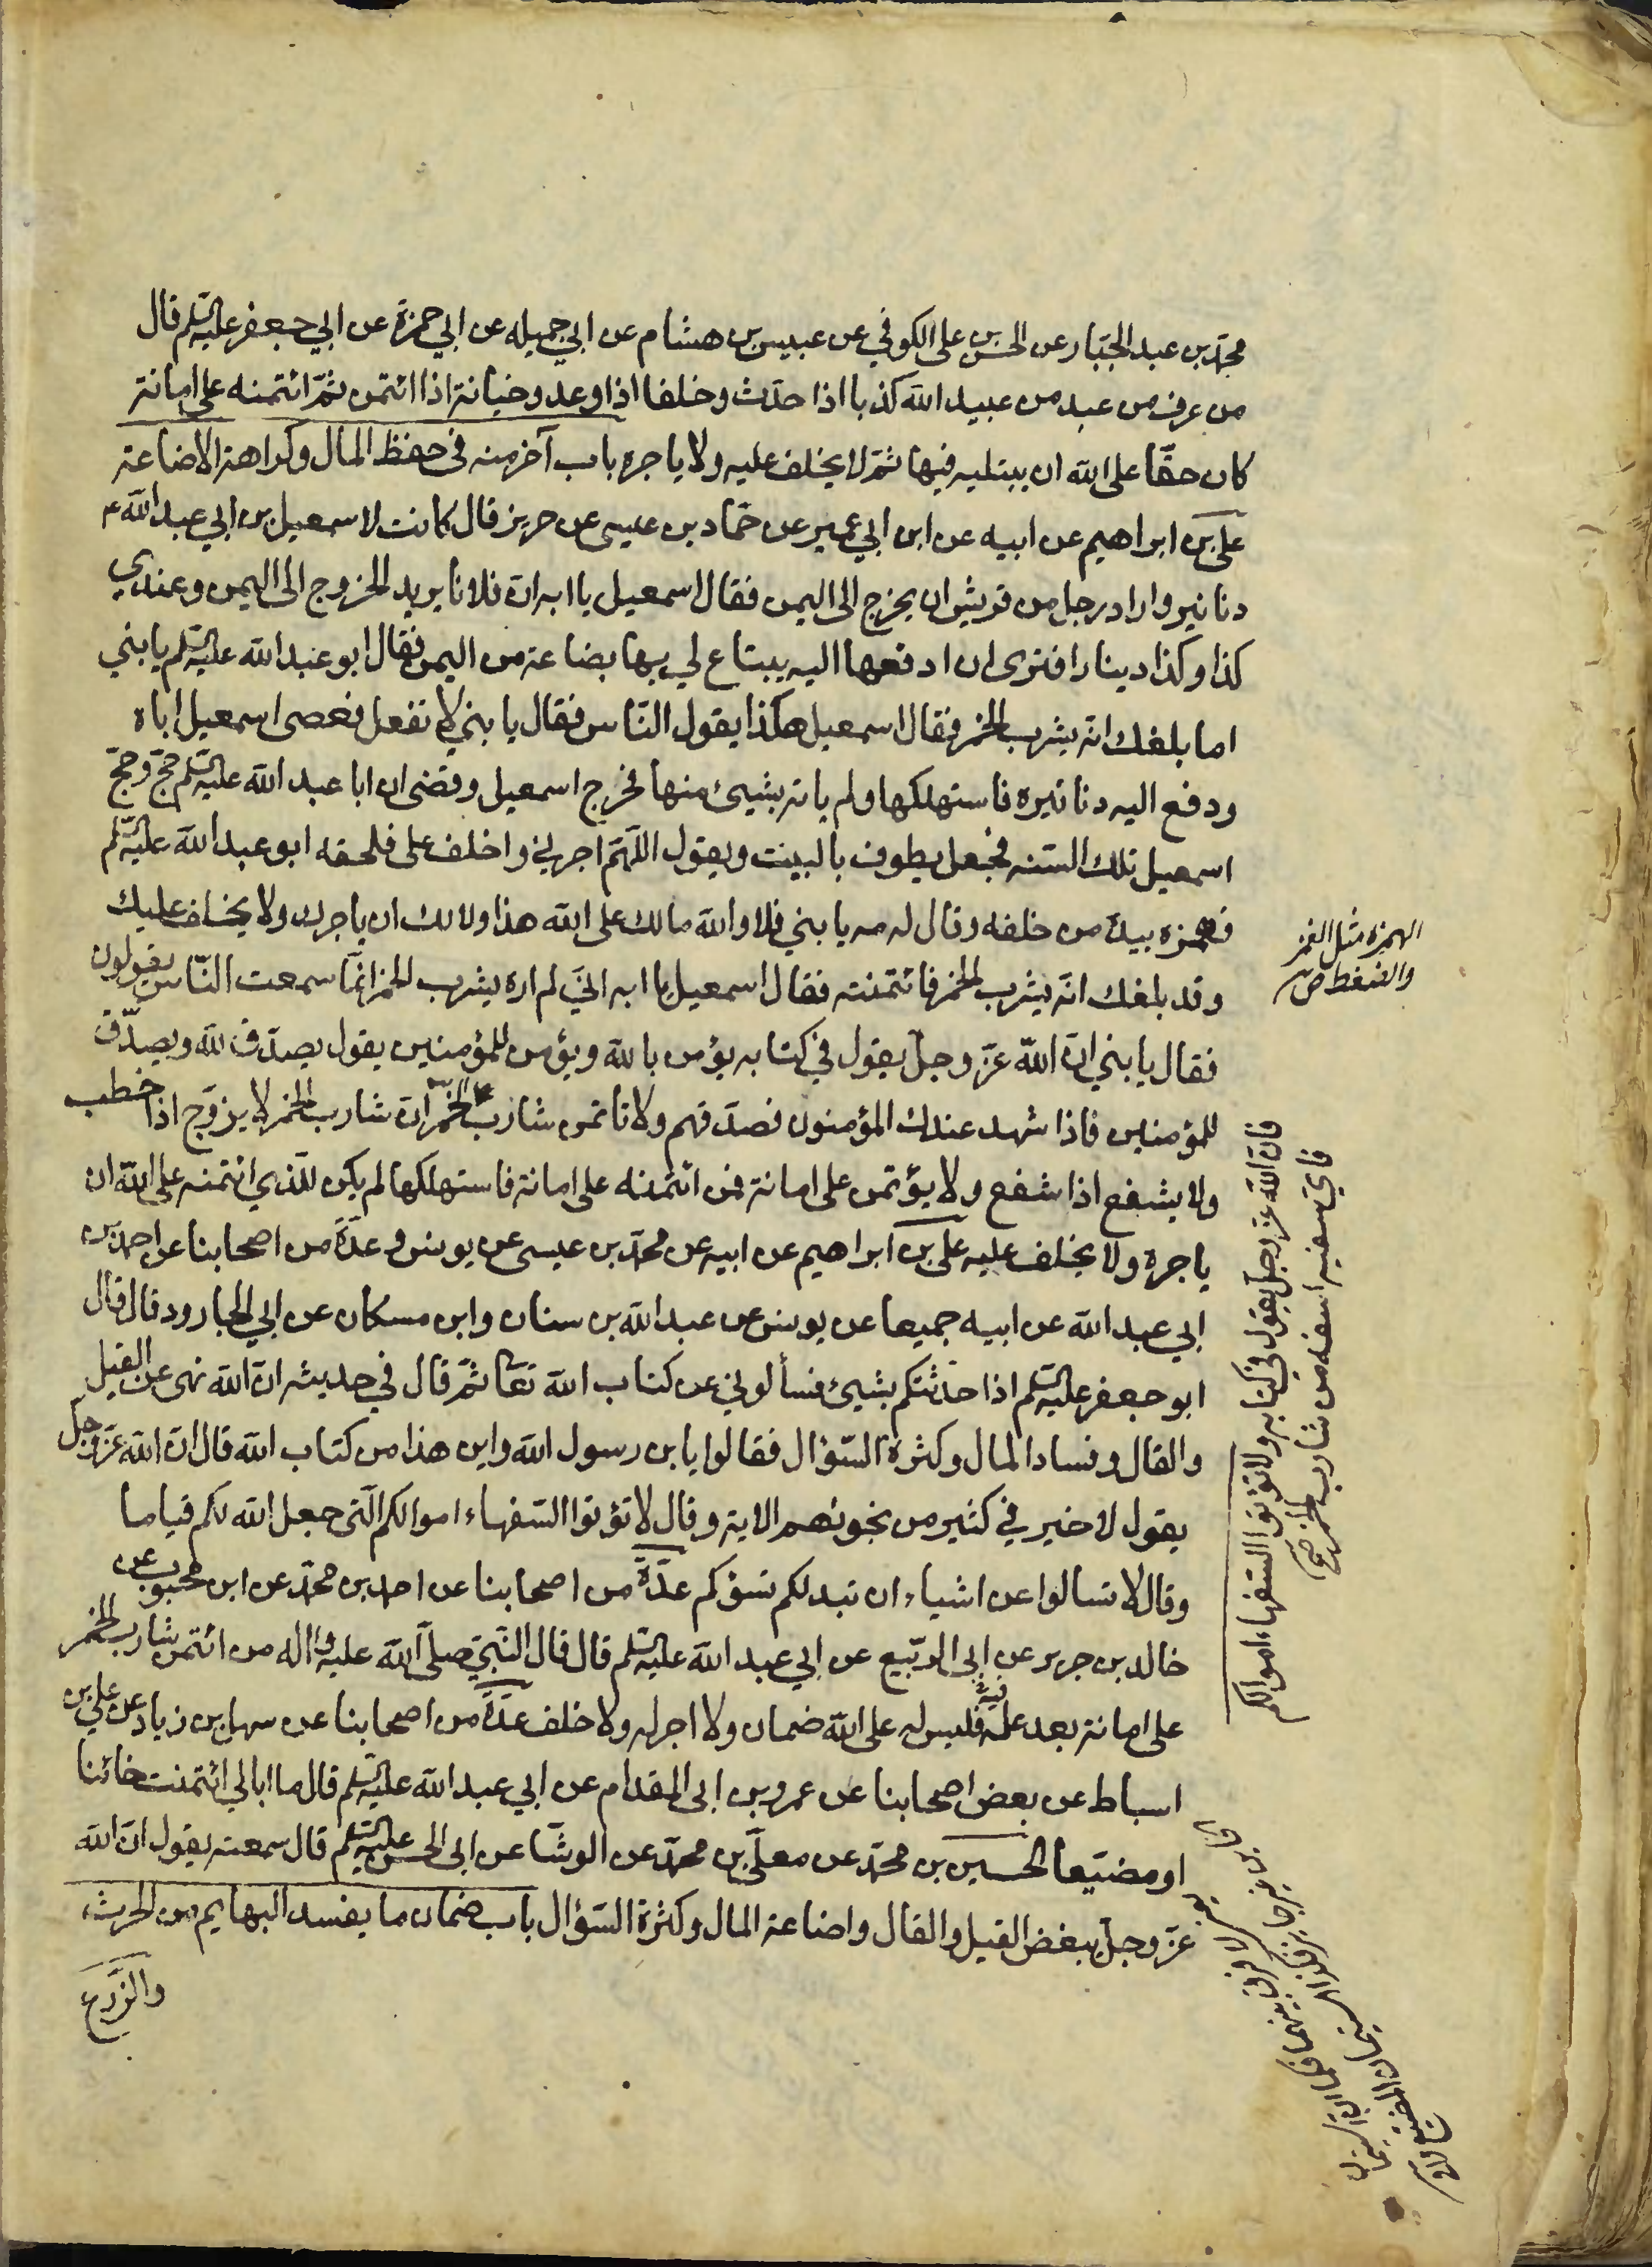 محمد بن عبد الجبار عن الحسن بن علي الكوفي عن عبيس بن هشام عن ابي جميله عن ابي حمزة عن ابي جعفر عليه السلم قال
من عرف من عبد من عبيد الله كذبا اذا حدّث وخلفا اذا وعد وخيانة اذا ائتمن ثمّ ائتمنه على امانة
كان حقّا على الله ان يبتليه فيها ثمّ لا يخلف عليه ولا ياجره باب آخر منه في حفظ المال وكراهة الاضاعة
علي بن ابراهيم عن ابيه عن ابن ابي عمير عن حمّاد بن عيسى عن حريز قال كانت لاسمعيل بن ابي عبد الله ع
دنانير واراد رجل من قريش ان يخرج الى اليمن فقال اسمعيل يا ابه انّ فلانا يريد الخروج الى اليمن وعندي
كذا وكذا دينارا افترى ان ادفعها اليه يبتاع لي بها بضاعة من اليمن فقال ابو عبد الله عليه السلم يا بني
اما بلغك انه يشرب الخمر فقال اسمعيل هكذا يقول النّاس فقال يا بني لا تفعل فعصى اسمعيل اباه
ودفع اليه دنانيره فاستهلكها ولم ياته بشيئ منها فخرج اسمعيل وقضى ان ابا عبد الله عليه السلم حجّ وحجّ
اسمعيل تلك السّنه فجعل يطوف بالبيت ويقول اللّهمّ اجرني واخلف علي فلحقه ابو عبد الله عليه السّلم
فهمزه بيده من خلفه وقال له مه يا بني فلا والله مالك على الله هذا ولا لك ان ياجرك ولا يخلف عليك
وقد بلغك انّه يشرب الخمر فائتمنته فقال اسمعيل يا ابه انّي لم اره يشرب الخمر انّما سمعت النّاس يقولون
فقال يا بني انّ الله عزّ وجلّ يقول في كتابه يؤمن بالله ويؤمن للمؤمنين يقول يصدّق لله ويصدّق
للمؤمنين فاذا شهد عندك المؤمنون فصدّقهم ولا تاتمن شارب الخمر انّ شارب الخمر لا يزوّج اذا خطب
ولا يشفع اذا شفع ولا يؤتمن على امانة فمن ائتمنه على امانة فاستهلكها لم يكن للّذي ائتمنه على الله ان
ياجره ولا يخلف عليه علي بن ابراهيم عن ابيه عن محمد بن عيسى عن يونس وعدّة من اصحابنا عن احمد بن
ابي عبد الله عن ابيه جميعا عن يونس عن عبد الله بن سنان وابن مسكان عن ابي الجارود قال قال
ابو جعفر عليه السلم اذا حدّثتكم بشيئ فسألوني عن كتاب الله تعا ثمّ قال في حديثه انّ الله نهى عن القيل
والقال وفساد المال وكثرة السّؤال فقالوا يا بن رسول الله واين هذا من كتاب الله قال انّ الله عزّ وجلّ
يقول لا خير في كثير من نجويهم الاية وقال لا تؤتوا السّفهاء اموالكم الّتي جعل الله لكم قياما
وقال لا تسالوا عن اشياء ان تبد لكم تسؤكم عدّة من اصحابنا عن احمد بن محمّد عن ابن محبوب عن
خالد بن جرير عن ابي الرّبيع عن ابي عبد الله عليه السلم قال قال النّبيّ صلّى الله عليه واله من ائتمن شارب الخمر
على امانة بعد علمه فيه فليس له على الله ضمان ولا اجر له ولا خلف عدّة من اصحابنا عن سهل بن زياد عن علي بن
اسباط عن بعض اصحابنا عن عمرو بن ابي المقدام عن ابي عبد الله عليه السلم قال ما ابالي ائتمنت خائنا
او مضيّعا الحسين بن محمّد عن معلّى بن محمّد عن الوشّا عن ابي الحسن عليه السلم قال سمعته يقول انّ الله
عزّ وجلّ يبغض القيل والقال واضاعة المال وكثرة السّؤال باب ضمان ما يفسد البهايم من الحرث
والزّرع
الهمزه مثل الغمز
والضغط ص
فانّ الله عزّ وجلّ يقول في كتابه ولا تؤتوا السّفهاء اموالكم
فايّ سفيه اسفه من شارب الخمر صح
لا فرق بينهما